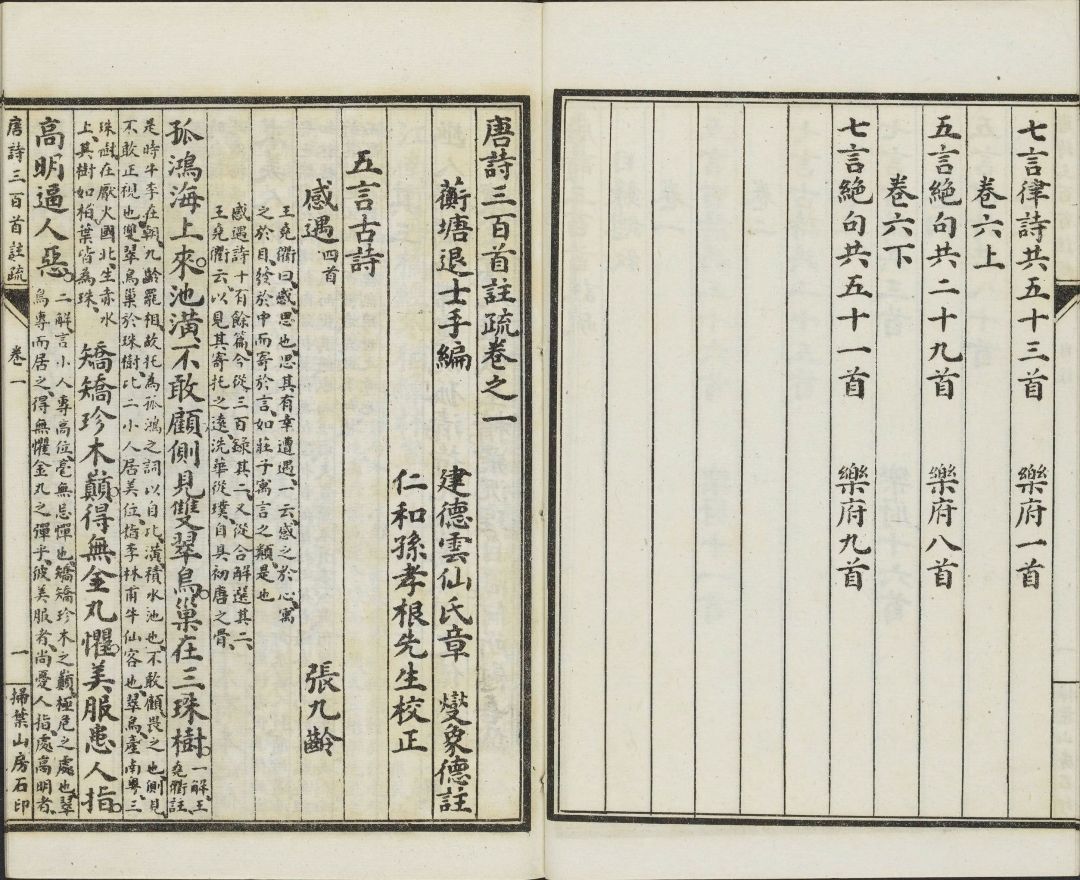 七言律詩共五十三首　樂府一首
卷六上
五言絕句共二十九首　樂府八首
卷六下
七言絕句共五十一首　樂府九首
唐詩三百首註疏卷之一
蘅塘退士手編　建德雲仙氏章　燮象德註
仁和孫孝根先生校正
五言古詩
感遇四首　張九齡
王堯衢曰感思也思其有幸遭遇一云感之於心寓
之於目發於中而寄於言如莊子寓言之類是也
感遇詩十有餘篇今從三百錄其二又從合解選其二
王堯衢云以見其寄托之遠洗華從璞自具初唐之骨
孤鴻海上來池潢不敢顧側見雙翠鳥巢在三珠樹一解王堯衢註
是時牛李在朝九齡罷相故托為孤鴻之詞以自況潢積水池也不敢顧畏之也側見
不敢正視也雙翠鳥巢於珠樹比二小人居美位指李林甫牛仙客也翠鳥產南粵三
珠樹在厭火國北生赤水
上其樹如柏葉皆為珠
矯矯珍木巔得無金丸懼美服患人指
高明逼人惡二解言小人專高位毫無忌憚也矯矯珍木之巔極危之處也翠
鳥專而居之得無懼金丸之彈乎彼美服者尚憂人指處高明者
唐詩三百首註疏　卷一　一　掃葉山房石印